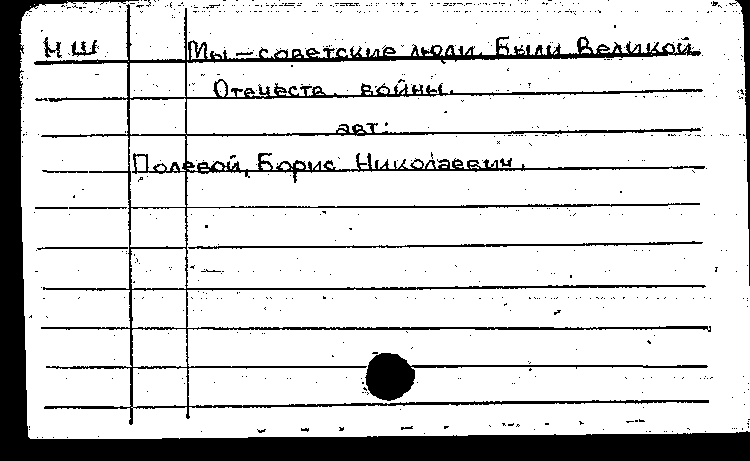 НШ Мы – советские люди. Были Великой
Отечеств. войны.
авт:
Полевой, Борис Николаевич.